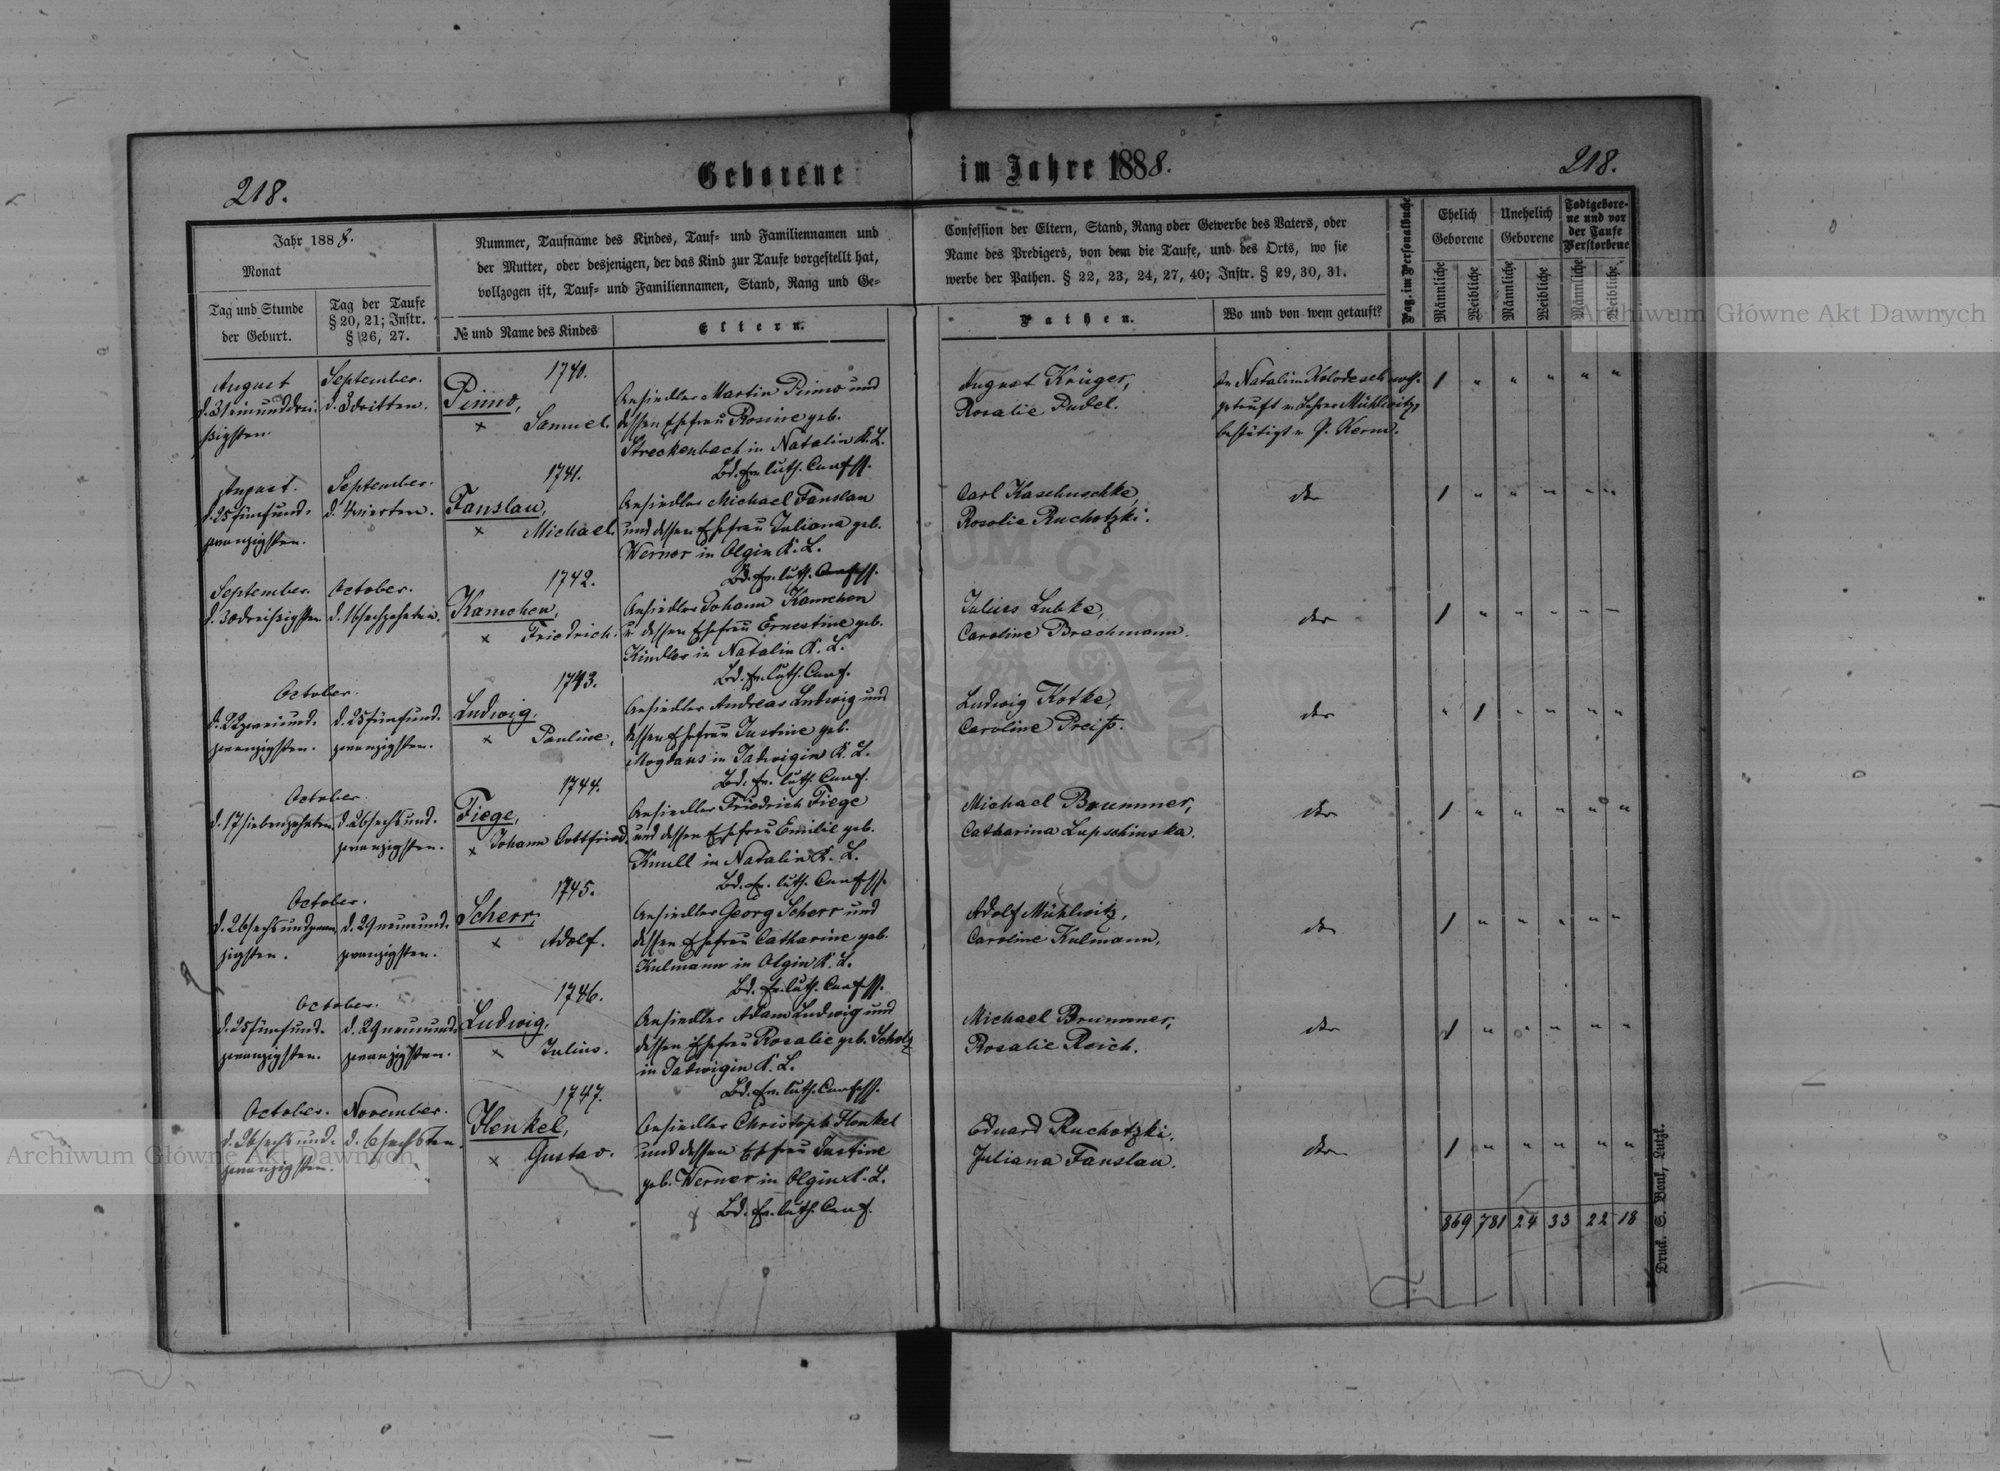 218.
Geborene im Jahre 1888.
218.
Jahr 1888.
Monat
Tag und Stunde
der Geburt.
Tag der Taufe
§ 20, 21; Instr.
§ 26, 27.
Nummer, Taufname des Kindes, Tauf- und Familiennamen und
der Mutter, oder desjenigen, der das Kind zur Taufe vorgestellt hat,
vollzogen ist, Tauf- und Familiennamen, Stand, Rang und Ge-
№ und Name des Kindes
Eltern.
Confession der Eltern, Stand, Rang oder Gewerbe des Vaters, oder
Name des Predigers, von dem die Taufe, und des Orts, wo sie
werbe der Pathen. § 22, 23, 24, 27, 40; Instr. § 29, 30, 31.
Pathen.
Wo und von wem getauft?
Pag. im Personalbuche
Ehelich
Geborene
Unehelich
Geborene
Todtgebore-
ne und vor
der Taufe
Verstorbene
Männliche
Weibliche
Männliche
Weibliche
Männliche
Weibliche
August
d. 31 einunddrei-
ßigsten.
September.
d. 3 dritten.
1740.
Pinno,
× Samuel.
Ansiedler Martin Pinno und
dessen Ehefrau Rosine geb.
Streckenbach in Natalin K. L.
Bd. Ev. luth. Confess.
August Krüger,
Rosalie Pudel.
In Natalin Kolodesch noth-
getauft v. Lehrer Mühlwitz,
bestätigt v. P. Kernd.
1 " " " " "
August.
d. 25 fünfund-
zwanzigsten.
September.
d. 4 vierten.
1741.
Fanslau,
× Michael.
Ansiedler Michael Fanslau
und dessen Ehefrau Juliana geb.
Werner in Olgin K. L.
Bd. Ev. luth. Confess.
Carl Kaschuschke,
Rosalie Ruchotzki.
dto
1 " " " " "
September.
d. 30 dreißigsten
October.
d. 16 sechzehnten.
1742.
Kamchen,
× Friedrich.
Ansiedler Johann Kamchen
u. dessen Ehefrau Ernestine geb.
Kindler in Natalin K. L.
Bd. Ev. luth. Conf.
Julius Lubke,
Caroline Brachmann.
dto
1 " " " " "
October.
d. 22 zweiund-
zwanzigsten.
d. 25 fünfund-
zwanzigsten.
1743.
Ludwig,
× Pauline,
Ansiedler Andreas Ludwig und
dessen Ehefrau Justine geb.
Mogdans in Jadwigin K. L.
Bd. Ev. luth. Conf.
Ludwig Kotke,
Caroline Preiß.
dto
" 1 " " " "
October.
d. 17 siebenzehnten
d. 26 sechsund-
zwanzigsten.
1744.
Fiege,
× Johann Gottfried.
Ansiedler Friedrich Fiege
und dessen Ehefrau Emilie geb.
Knull in Natalin K. L.
Bd. Ev. luth. Confess.
Michael Brummer,
Catharina Lupschinska.
dto
1 " " " " "
October.
d. 26 sechsundzwan-
zigsten.
d. 29 neunund-
zwanzigsten.
1745.
Scherr,
× Adolf.
Ansiedler Georg Scherr und
dessen Ehefrau Catharine geb.
Kulmann in Olgin K. L.
Bd. Ev. luth. Confess.
Adolf Mühlwitz,
Caroline Kulmann.
dto
1 " " " " "
October.
d. 25 fünfund-
zwanzigsten.
d. 29 neunund-
zwanzigsten.
1746.
Ludwig,
× Julius.
Ansiedler Adam Ludwig und
dessen Ehefrau Rosalie geb. Scholz
in Jadwigin K. L.
Bd. Ev. luth. Confess.
Michael Brummer,
Rosalie Reich.
dto
1 " " " " "
October.
d. 26 sechsund-
zwanzigsten.
November.
d. 6 sechsten.
1747.
Henkel,
× Gustav.
Ansiedler Christoph Henkel
und dessen Ehefrau Justine
geb. Werner in Olgin K. L.
Bd. Ev. luth. Conf.
Eduard Ruchotzki.
Juliana Fanslau.
dto
1 " " " " "
869 781 24 33 22 18
Druck. S. Bonk, Lutzk.
Archiwum Główne Akt Dawnych
Archiwum Główne Akt Dawnych